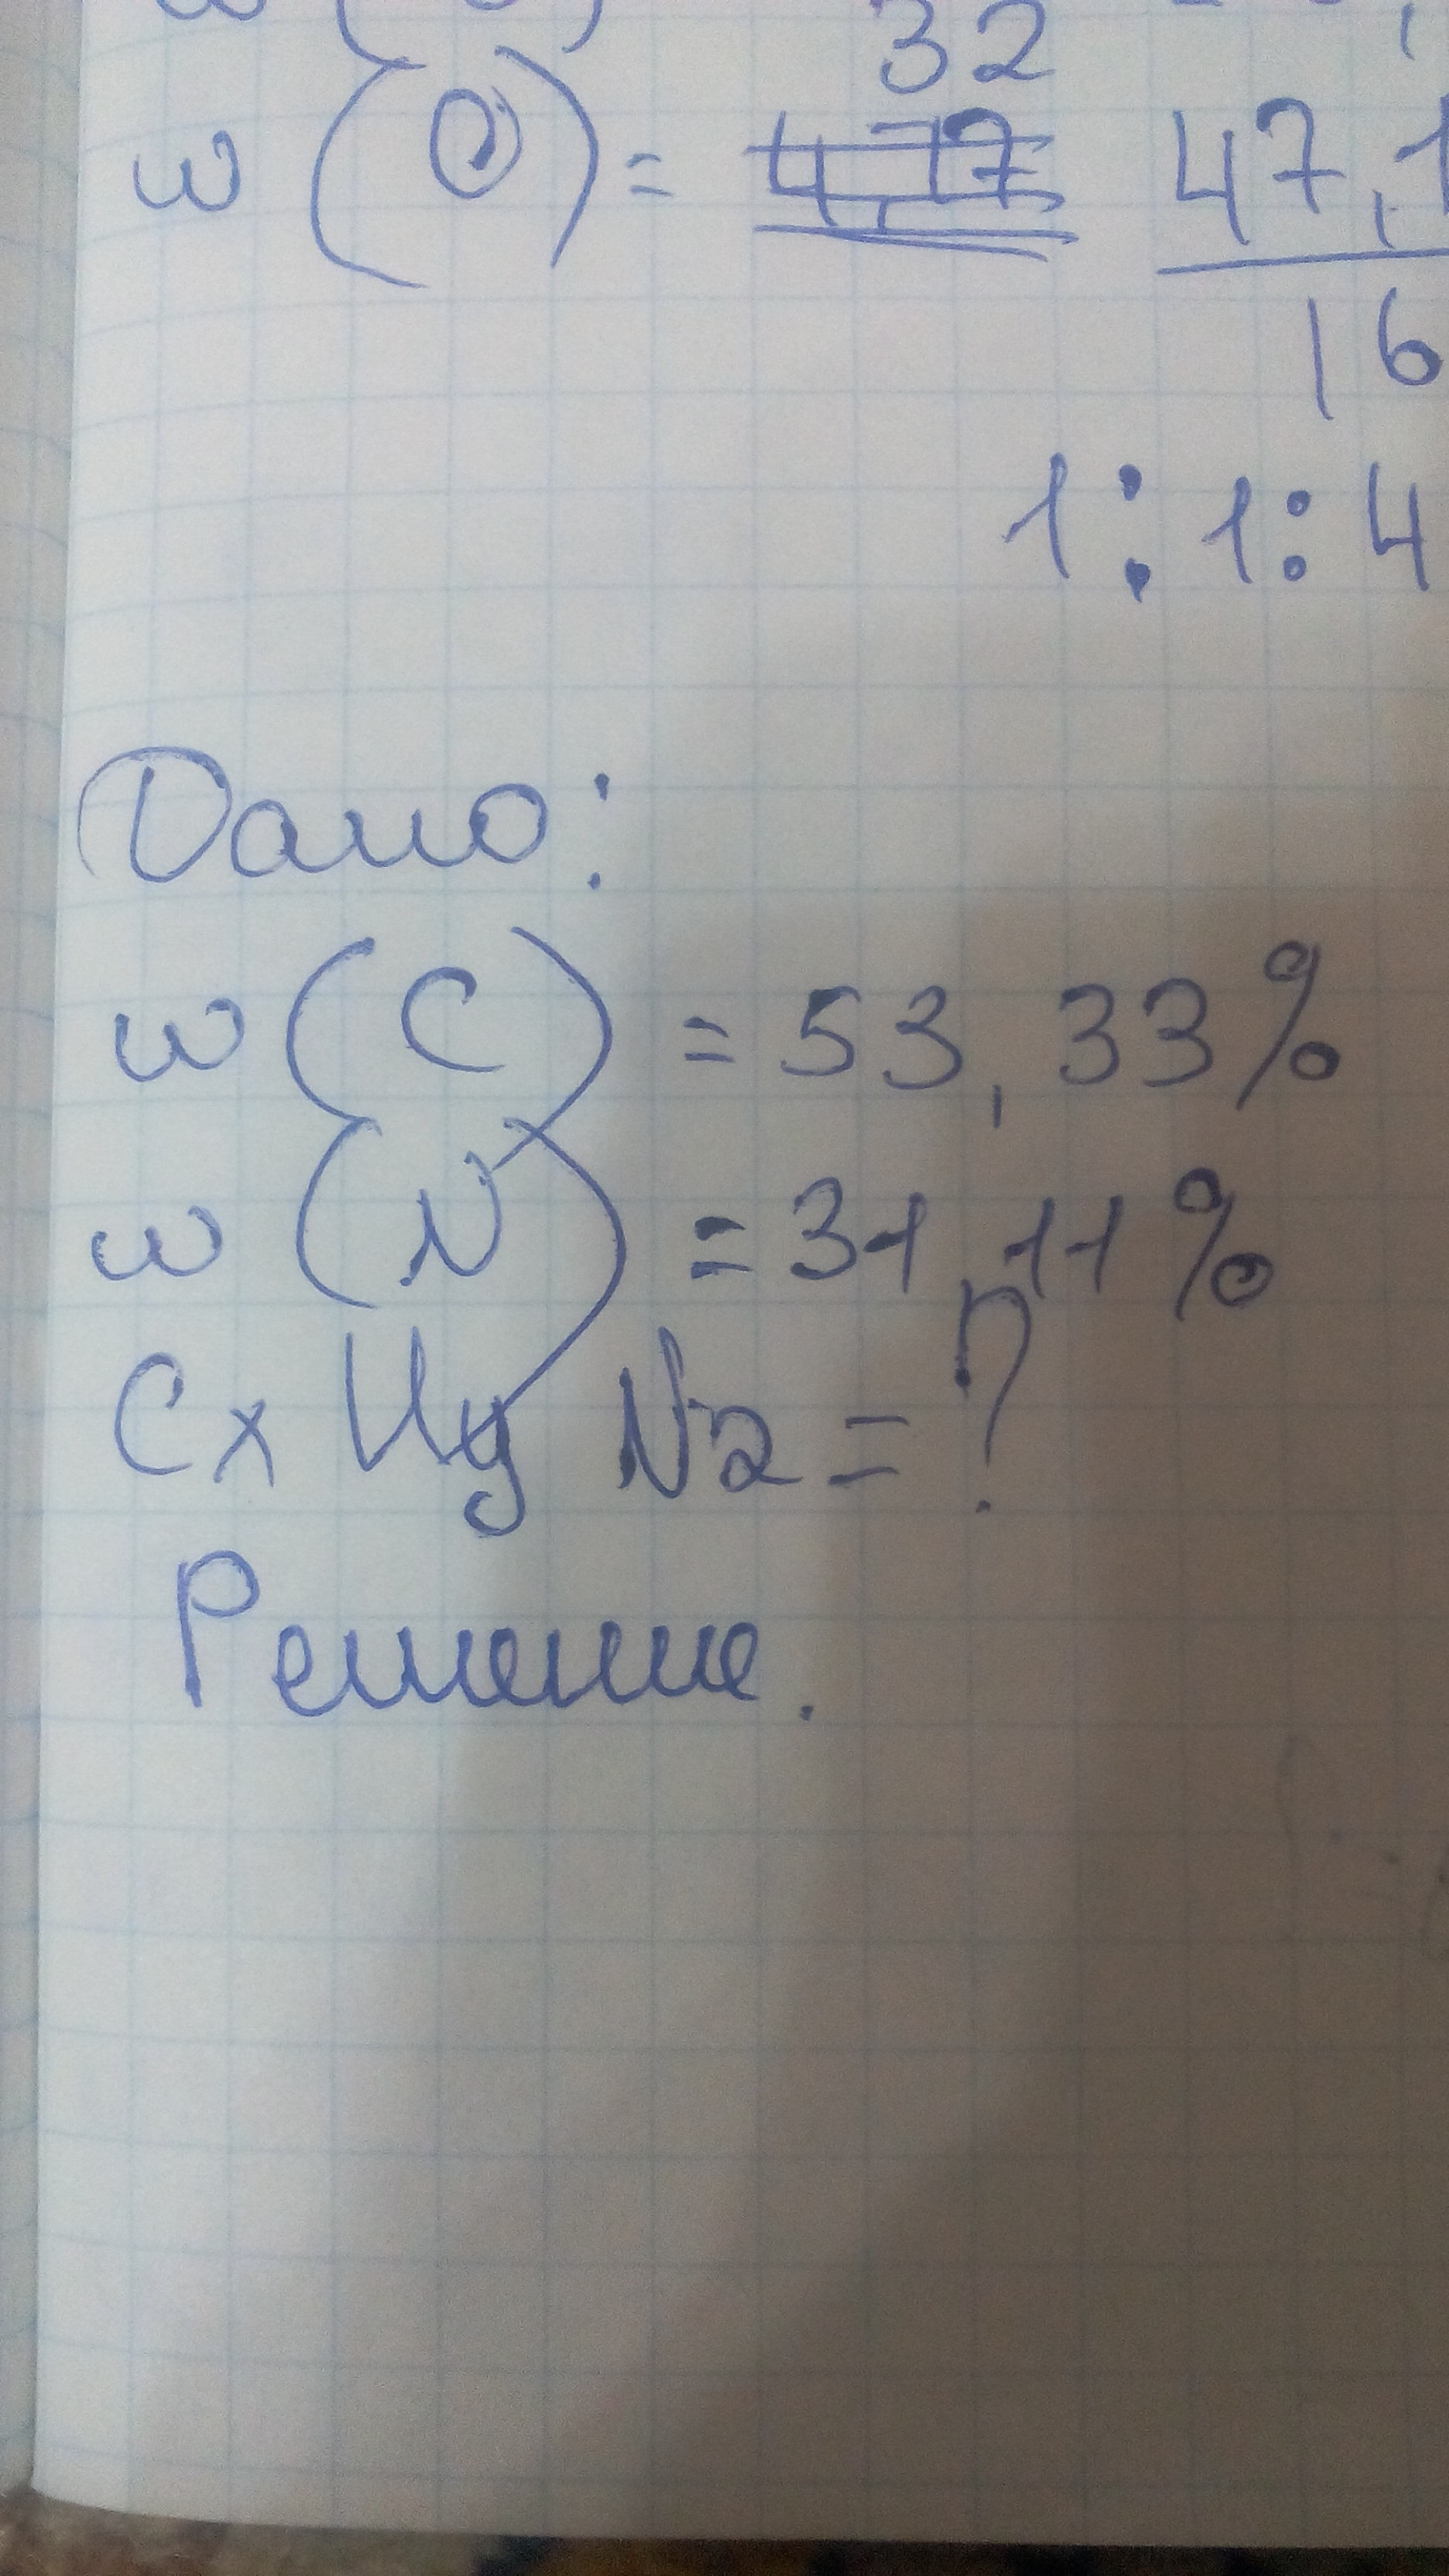 32
w (O) = 4,17 47,1
16
1:1:4
Дано:
w (C) = 53,33%
w (N) = 31,11%
Cx Hy Nz = ?
Решение.